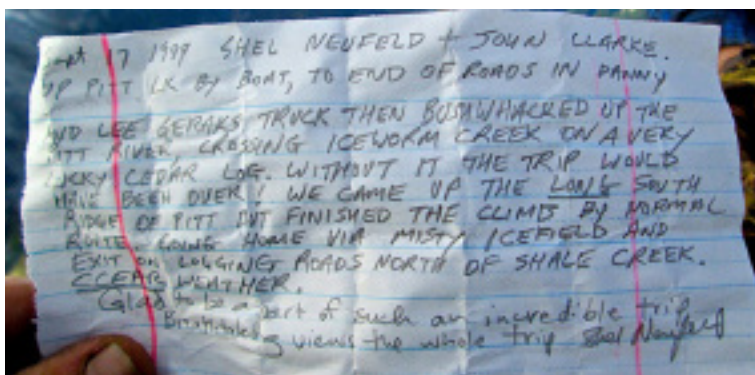 Sept 17 1999 SHEL NEUFELD + JOHN CLARKE.
UP PITT LK BY BOAT, TO END OF ROADS IN DANNY
AND LEE GERAKS TRUCK THEN BUSHWHACKED UP THE
PITT RIVER, CROSSING ICEWORM CREEK ON A VERY
LUCKY CEDAR LOG. WITHOUT IT THE TRIP WOULD
HAVE BEEN OVER! WE CAME UP THE LONG SOUTH
RIDGE OF PITT BUT FINISHED THE CLIMB BY NORMAL
ROUTE. GOING HOME VIA MISTY ICEFIELD AND
EXIT ON LOGGING ROADS NORTH OF SHALE CREEK.
CLEAR WEATHER.
Glad to be a part of such an incredible trip
Breathtaking views the whole trip Shel Neufeld